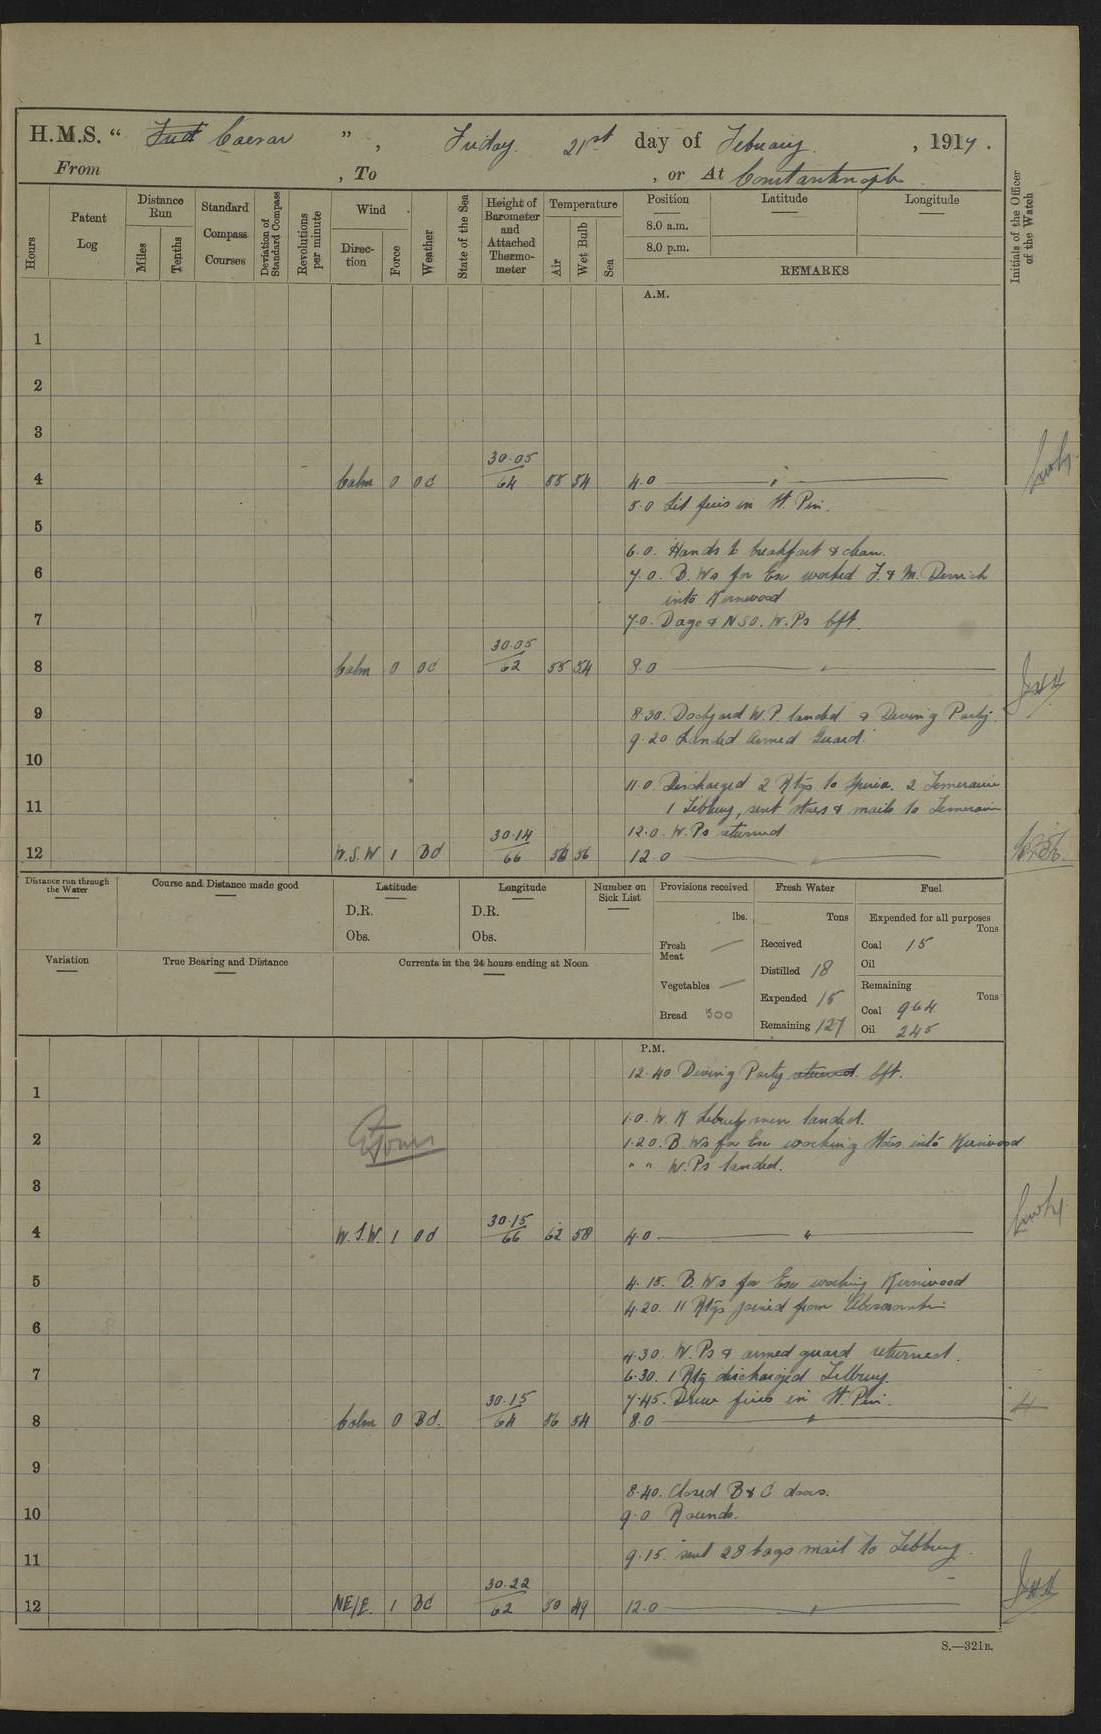 H.M.S. " Caesar ", Friday 21st day of February, 191
From , To , or At Constantinople
Hours
Patent Log
Distance Run
Miles
Tenths
Standard Compass Courses
Deviation of Standard Compass
Revolutions per minute
Wind
Direction
Force
Weather
State of the Sea
Height of Barometer and Attached Thermometer
Temperature
Air
Wet Bulb
Sea
Position
8.0 a.m.
8.0 p.m.
Latitude
Longitude
REMARKS
Initials of the Officer of the Watch
A.M.
1
2
3
4 Calm 0 0d 30.05/64 55 54 4.0 "
5.0 Lit fires in St. Pin.
5
6.0. Hands to breakfast & clean.
6 7.0. B.Ws for Ex worked F. & M. Derrick
into Kernwood
7 7.0. & NSO. W.Ps left.
8 Calm 0 0d 30.05/62 55 54 8.0 "
9 8.30. Dockyard W.P. landed & Diving Party.
9.20 Landed Armed Guard.
10
11.0. Discharged 2 Rtgs to 2 Temeraire
11 1 Tilbury, sent stores & mails to Temeraire
12.0. W.Ps returned
12 W.S.W 1 Bd 30.14/66 56 12.0 "
Distance run through the Water
Course and Distance made good
Latitude
D.R.
Obs.
Longitude
D.R.
Obs.
Number on Sick List
Provisions received
lbs.
Fresh Meat —
Vegetables —
Bread 500
Fresh Water
Tons
Received
Distilled 18
Expended 15
Remaining 127
Fuel
Expended for all purposes
Tons
Coal 15
Oil
Remaining
Tons
Coal 964
Oil 245
Variation
True Bearing and Distance
Currents in the 24 hours ending at Noon
P.M.
12.40 Diving Party returned left.
1
1.0. W.R Liberty men landed.
2 1.20. B.Ws for Ex working stores into Kernwood
" " W.Ps landed.
3
4 W.S.W. 1 0d 30.15/66 62 58 4.0 "
5 4.15. B.Ws for Ex working Kernwood
4.20. 11 Rtgs joined from
6
4.30. W.Ps & armed guard returned.
7 6.30. 1 Rtg discharged Tilbury.
7.45. Drew fires in St. Pin.
8 Calm 0 Bd. 30.15/64 56 54 8.0 "
9
8.40. Closed B & C doors.
10 9.0 Rounds.
11 9.15. sent 28 bags mail to Tilbury.
12 NE/E. 1 Bd 30.22/62 50 49 12.0 "
S.—321B.